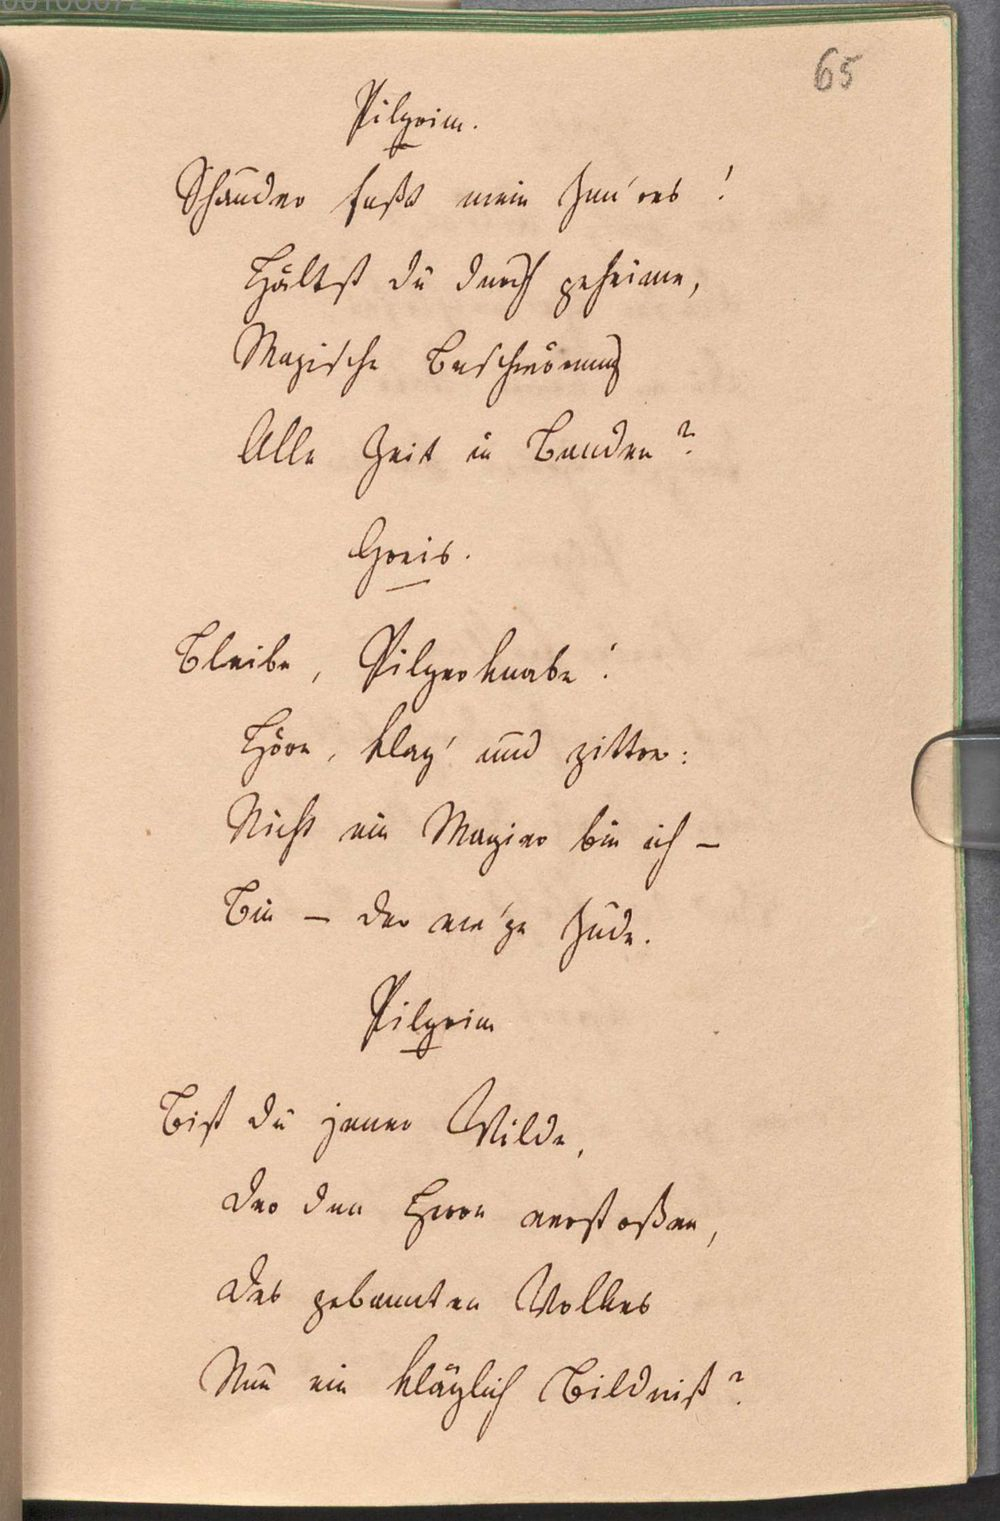 65
Pilgrim.
Schauder faßt mein Inn'res!
Hältst du durch geheime,
Magische Beschwörung
Alle Zeit in Banden?
Greis.
Bleibe, Pilgerknabe!
Höre, klag' und zittre:
Nicht ein Magier bin ich –
Bin – der ew'ge Jude.
Pilgrim
Bist du jener Wilde,
Der den Herrn verstoßen,
Des gebannten Volkes
Nun ein kläglich Bildniß?